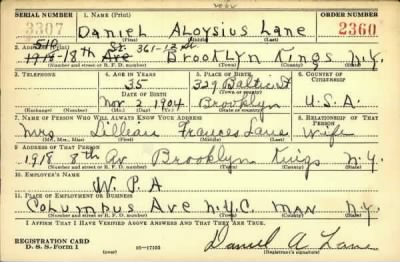 SERIAL NUMBER 1. NAME (Print) ORDER NUMBER
3307 Daniel Aloysius Lane 2360
(First) (Middle) (Last)
510 St. 361-12 St
2. ADDRESS (Print)
1918-18th Ave Brooklyn Kings N.Y.
(Number and street or R. F. D. number) (Town) (County) (State)
3. TELEPHONE 4. AGE IN YEARS 5. PLACE OF BIRTH 6. COUNTRY OF CITIZENSHIP
35 329 Baltic St
DATE OF BIRTH
Nov 2 1904 Brooklyn U.S.A.
(Exchange) (Number) (Mo.) (Day) (Yr.) (State or country)
7. NAME OF PERSON WHO WILL ALWAYS KNOW YOUR ADDRESS 8. RELATIONSHIP OF THAT PERSON
Mrs Lillian Frances Lane Wife
(Mr., Mrs., Miss) (First) (Middle) (Last)
9. ADDRESS OF THAT PERSON
1918 8th Av Brooklyn Kings N.Y.
(Number and street or R. F. D. number) (Town) (County) (State)
10. EMPLOYER'S NAME
W.P.A
11. PLACE OF EMPLOYMENT OR BUSINESS
Columbus Ave N.Y.C. Man N.Y.
(Number and street or R. F. D. number) (Town) (County) (State)
I AFFIRM THAT I HAVE VERIFIED ABOVE ANSWERS AND THAT THEY ARE TRUE.
REGISTRATION CARD
D. S. S. Form 1 16-17105 Daniel A Lane
(Registrant's signature)